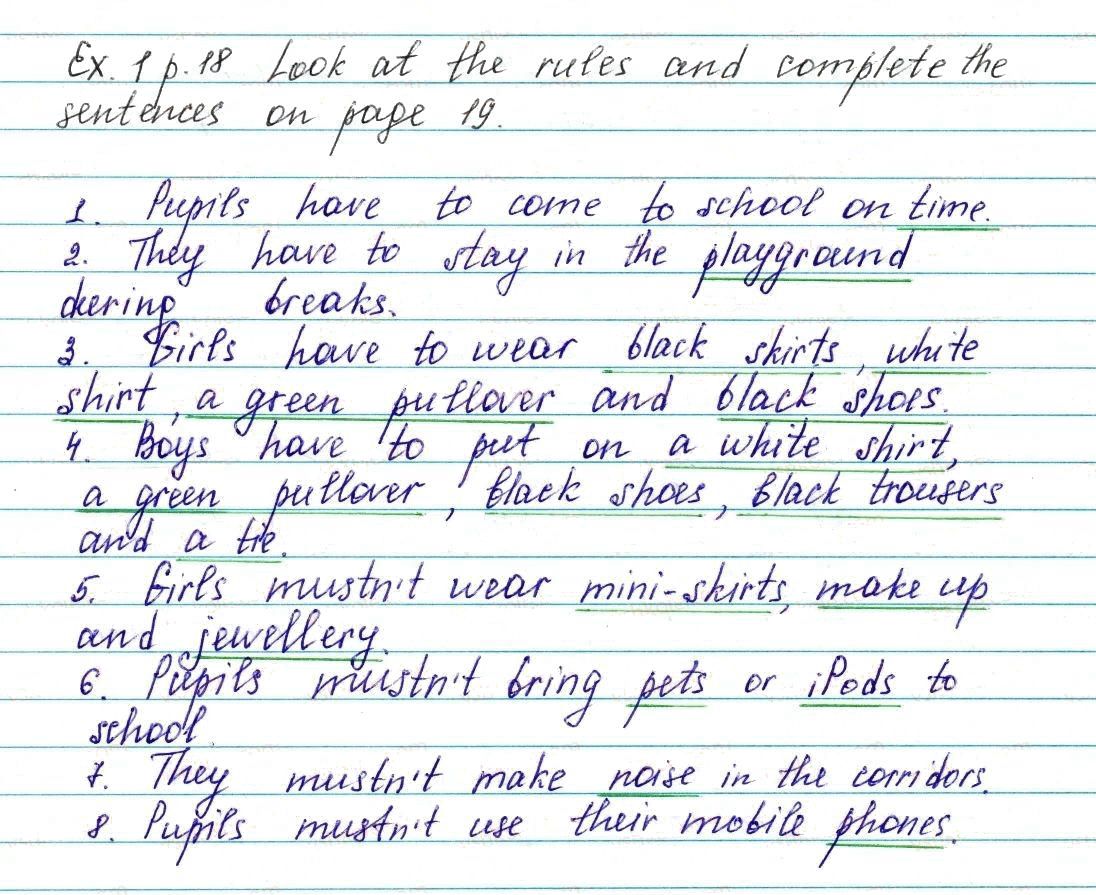 Ex. 1 p. 18 Look at the rules and complete the
sentences on page 19.
1. Pupils have to come to school on time.
2. They have to stay in the playground
during breaks.
3. Girls have to wear black skirts, white
shirt, a green pullover and black shoes.
4. Boys have to put on a white shirt,
a green pullover, black shoes, black trousers
and a tie.
5. Girls mustn't wear mini-skirts, make up
and jewellery.
6. Pupils mustn't bring pets or iPods to
school.
7. They mustn't make noise in the corridors.
8. Pupils mustn't use their mobile phones.